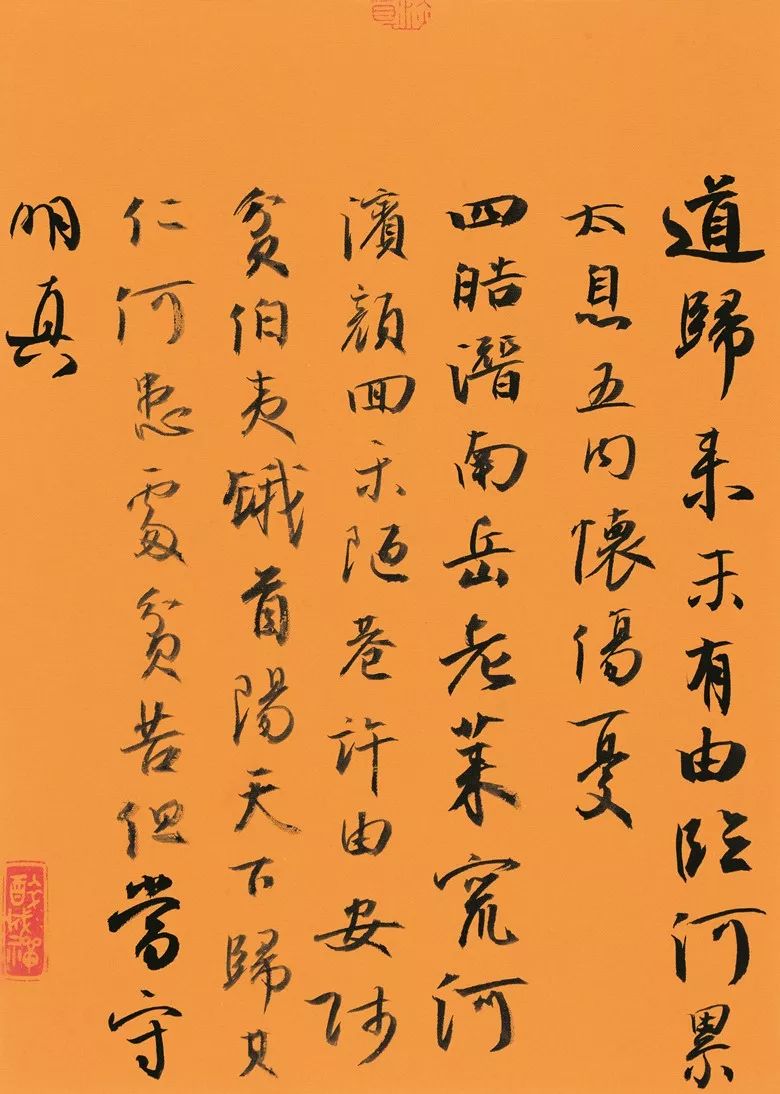 道歸来未有由臨河累
太息五内懷傷憂
四皓潛南岳老萊竄河
濱顏回乐陋巷許由安賤
貧伯夷餓首陽天下歸其
仁何患處貧苦但當守
明真